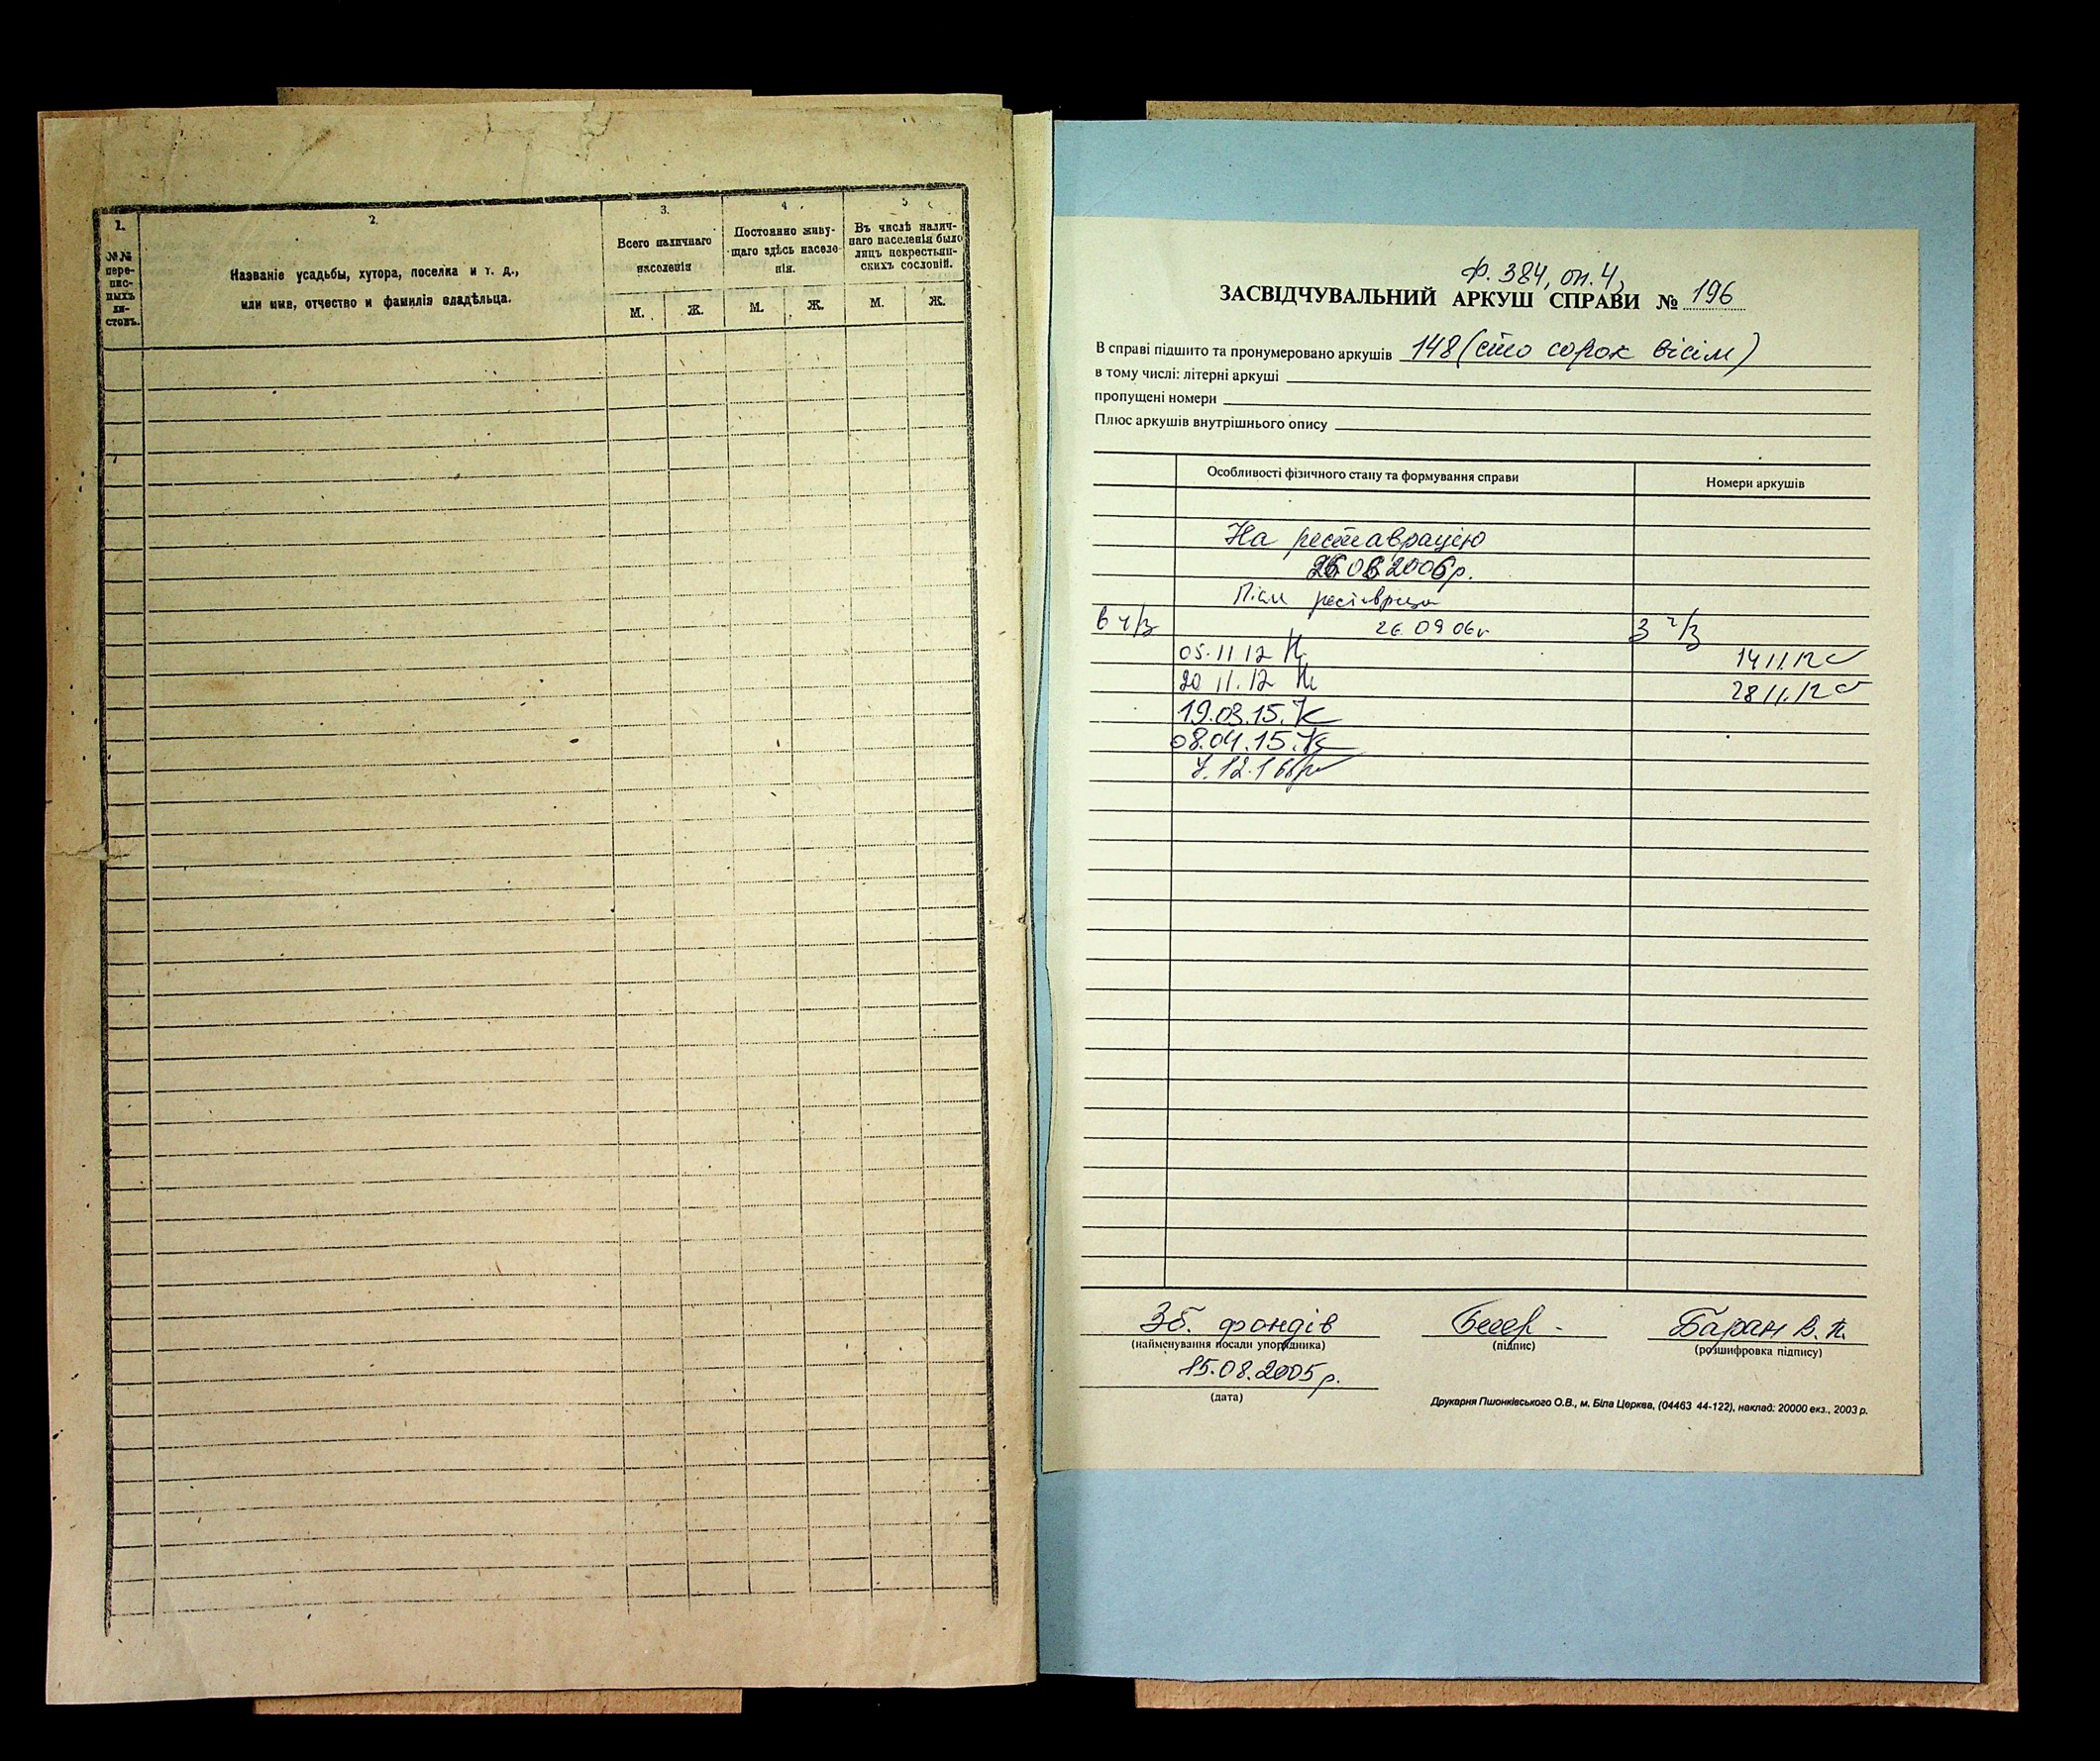 1.
№№ пере-
пис-
ныхъ
ли-
стовъ.
2.
Названіе усадьбы, хутора, поселка и т. д.,
или имя, отчество и фамилія владѣльца.
3.
Всего наличнаго
населенія
М. Ж.
4
Постоянно живу-
щаго здѣсь населе-
нія.
М. Ж.
5
Въ числѣ налич-
наго населенія было
лицъ некрестьян-
скихъ сословій.
М. Ж.
Ф. 384, оп. 4,
ЗАСВІДЧУВАЛЬНИЙ АРКУШ СПРАВИ № 196
В справі підшито та пронумеровано аркушів 148 (сто сорок вісім)
в тому числі: літерні аркуші
пропущені номери
Плюс аркушів внутрішнього опису
Особливості фізичного стану та формування справи
Номери аркушів
На реставрацію
2006р.
в ч/з 26.09 06 З ч/з
05.11.12 14 11.12
20 11.12 28 11.12
19.03.15.
08.04.15.
Зб. фондів Баран В. П.
(найменування посади упорядника) (підпис) (розшифровка підпису)
15.08.2005 р.
(дата)
Друкарня Пшонківського О.В., м. Біла Церква, (04463 44-122), наклад: 20000 екз., 2003 р.